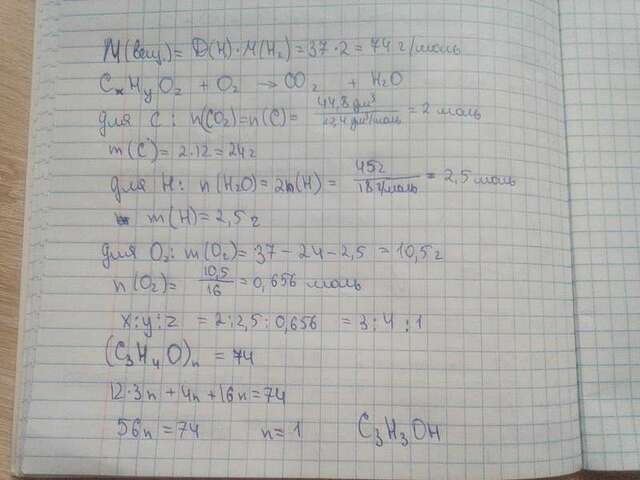 M(вещ.) = D(H)·M(H₂) = 37·2 = 74 г/моль
CₓHᵧO₂ + O₂ → CO₂ + H₂O
для C: n(CO₂)=n(C)= 44,8 дм³/22,4 дм³/моль = 2 моль
m(C)= 2·12 = 24 г
для H: n(H₂O) = 2n(H) = 45г/18 г/моль = 2,5 моль
m(H) = 2,5 г
для O₂: m(O₂) = 37 - 24 - 2,5 = 10,5 г
n(O₂) = 10,5/16 = 0,656 моль
x:y:z = 2:2,5:0,656 = 3:4:1
(C₃H₄O)ₙ = 74
12·3n + 4n + 16n = 74
56n = 74 n = 1 C₃H₃OH